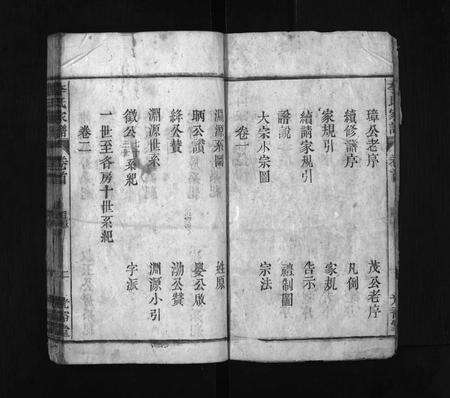 璋公老序 茂公老序
續修譜序 凡例
家規引 家規
續請家規引 告示
譜說 禮制圖
大宗小宗圖 宗法
卷一
淵源系圖 姓原
昞公讚 嬰公啟
絳公贊 渤公贊
淵源世系 淵源小引
徵公三世系紀 字派
一世至各房十世系紀
卷二
李氏家譜 卷首